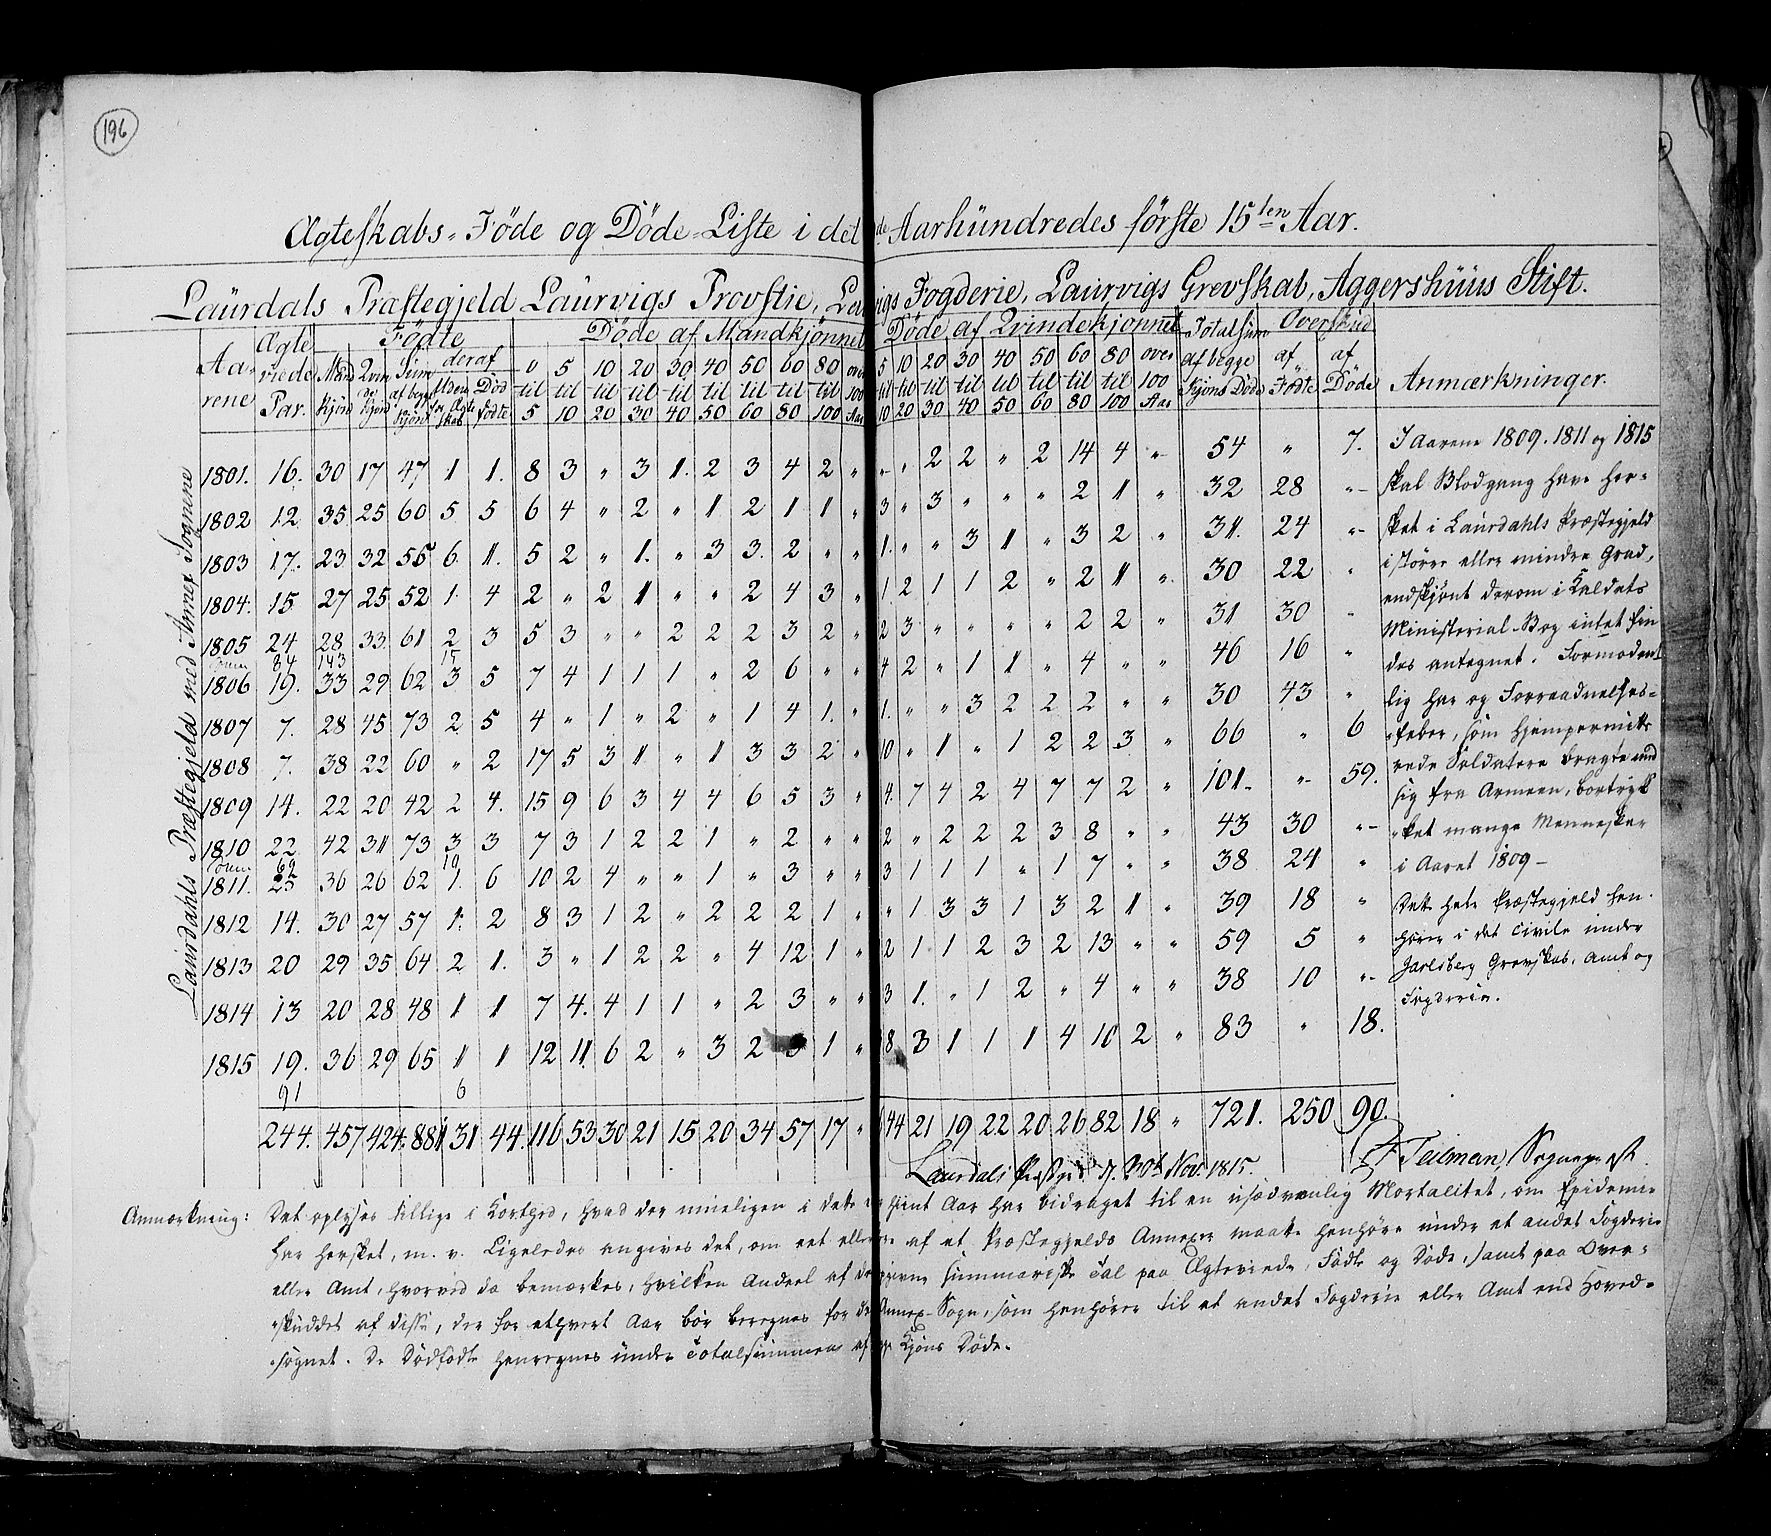 196
Ægteskabs- Föde og Döde-Liste i det de Aarhundredes förste 15ten Aar.
Laurdals Præstegjeld Laurvigs Provstie, Laurvigs Fogderie, Laurvigs Grevskab, Aggershuus Stift.
Laurdahls Præstegjeld med Annex Sognene
Aarene | Ægteviede Par. | Födte | Döde af Mandkjönnet | Döde af Qvindekjönnet | Totalsum af begge Kjöns Döde | Overskud af Födte | af Döde | Anmærkninger.
Mandkjön | Qvindekjön | Sum af begge Kjön | deraf Uden for Ægteskab | Död födte | 0 til 5 | 5 til 10 | 10 til 20 | 20 til 30 | 30 til 40 | 40 til 50 | 50 til 60 | 60 til 80 | 80 til 100 | over 100 Aar | 5 til 10 | 10 til 20 | 20 til 30 | 30 til 40 | 40 til 50 | 50 til 60 | 60 til 80 | 80 til 100 | over 100 Aar
1801. 16. 30 17 47 1 1. 8 3 " 3 1. 2 3 4 2 " " " 2 2 " 2 14 4 " 54 " 7.
1802 12 35 25 60 5 5 6 4 " 2 " 1 2 1 1 " 3 " 3 " " " 2 1 " 32 28 "
1803 17. 23 32 55 6. 1. 5 2 " 1. " 3 3. 2 " " 1. " " 3 1 " 3 2 " 31. 24 "
1804. 15 27 25 52 1. 4 2 " 2 1 " " 2 4 3 " 1. 2 1 1 2 " 2 1 " 30 22 "
1805 24 28 33. 61 2 3 5 3 " " 2 2 2 3 2 " 2 3 " " " " 2 2 " 31 30 "
Sum 84 143 15
1806 19. 33 29 62 3 5 7 4 1 1 1 " 2 6 " " 4 2 " 1 1 " 4 " " 46 16 "
1807 7. 28 45 73 2 5 4 " 1 " 2 " 1 4 1. " 1. " " 3 2 2 2 " " 30 43 "
1808 7. 38 22 60 " 2 17 5 3 1 " 1 3 3 2 " 10 " 1 " 1 2 2 3 " 66 " 6
1809 14. 22 20 42 2 4. 15 9 6 3 4 4 6 5 3 " 4. 7 4 2 4 7 7 2 " 101. " 59.
1810 22 42 31 73 3 3 7 3 1 2 2 1 " 2 " " 2 " 2 2 2 3 8 " " 43 30 "
Sum 69 10
1811. 25 36 26 62 1. 6 10 2 4 " " 1 " 3 " " 3 1 1 1 " 1 7 " " 38 24 "
1812 14. 30 27 57 1. 2 8 3 1 2 " 2 2 2 1 " " 1 3 3 1 3 2 1 " 39 18 "
1813 20 29 35 64 2 1. 3 " 1 2 2 " 4 12 1 " 2 1 1 2 3 2 13 " " 59 5 "
1814 13 20 28 48 1 1 7 4. 4 1 1 " 2 3 " " 3 1. " 1 2 " 4 " " 38 10 "
1815 19. 36 29 65 1 1 12 11. 6 2 " 3 2 3 1 " 8 3 1 1 1 4 10 2 " 83 " 18.
91 6
244. 457 424. 881 31 44. 116 53 30 21 15 20 34 57 17 " 44 21 19 22 20 26 82 18 " 721. 250 90.
I Aarene 1809. 1811 og 1815
skal Blodgang have her-
sket i Laurdahls Præstegjeld
i större eller mindre Grad,
endskjönt derom i Kaldets
Ministerial-Bog intet fin
des antegnet. Formodent
lig har og Forraadnelses-
feber, som hjempermitte
rede Soldatere bragte med
sig fra Armeen, bortryk
ket mange Mennesker
i Aaret 1809 –
Dette hele Præstegjeld hen-
hörer i det Civile under
Jarlsberg Grevskab, Amt og
Fogderie.
Laurdals Præstgd d. 30t Nov. 1815.
Teilman, Sognepræst
Anmærkning: Det oplyses tillige i Korthed, hvad der rimeligen i dette hint Aar har bidraget til en usædvanlig Mortalitet, om Epidemie
har hersket, m. v. Ligeledes angives det, om eet eller af et Præstegjelds Annexer maatte henhöre under et andet Fogderie
eller Amt, hvorved da bemærkes, hvilken Andeel af de givne summariske Tal paa Ægteviede, Födte og Döde, samt paa Over-
skuddet af disse, der for ethvert Aar bör beregnes for det Annex-Sogn, som henhörer til et andet Fogderie eller Amt end Hoved-
sognet. De Dödfödte henregnes under Totalsummen af Kjöns Döde.